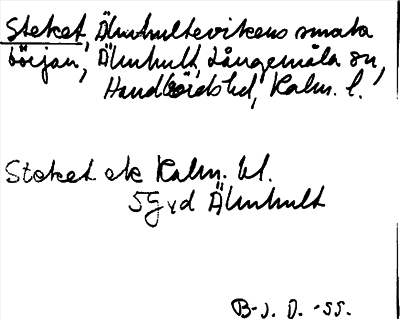 Steket, Älmhultsvikens smala
början, Älmhult, Långemåla sn,
Handbörds hd, Kalm. l.
Steket ek Kalm. bl.
5G vd Älmhult
B-s. D. -55.